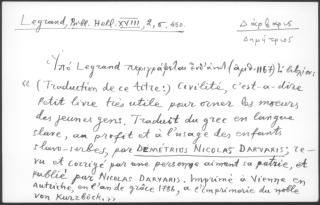 Legrand, Bibl. Hell. XVIII, 2, σ. 450.
Δάρβαρις
Δημήτριος
Ὑπό Legrand περιγράφεται ἐνθ' ἀνωτ. (ἀριθ. 1167)
« (Traduction de ce titre:) Civilité, c'est-à-dire
petit livre très utile pour orner les moeurs
des jeunes gens. Traduit du grec en langue
slave, au profit et à l'usage des enfants
slavo-serbes, par DÉMÉTRIOS NICOLAS DARVARIS; re-
vu et corrigé par une personne aimant sa patrie, et
publié par NICOLAS DARVARIS. Imprimé à Vienne en
Autriche, en l'an de grâce 1786, à l'imprimerie du noble
von Kurzböck. »